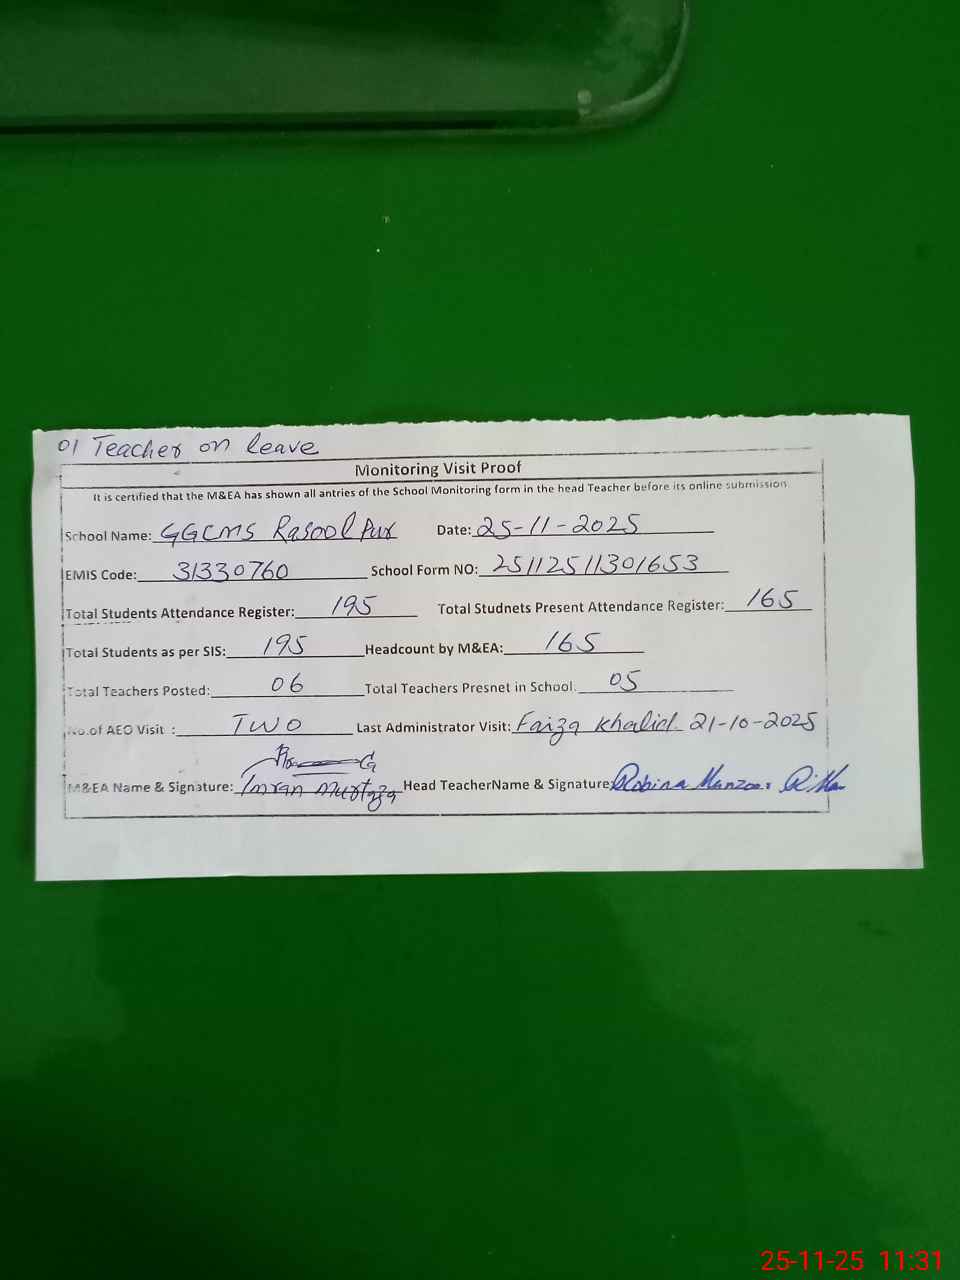 01 Teacher on leave
Monitoring Visit Proof
It is certified that the M&EA has shown all antries of the School Monitoring form in the head Teacher before its online submission
School Name: GGCMS Rasool Pur Date: 25-11-2025
EMIS Code: 31330760 School Form NO: 25112511301653
Total Students Attendance Register: 195 Total Studnets Present Attendance Register: 165
Total Students as per SIS: 195 Headcount by M&EA: 165
Total Teachers Posted: 06 Total Teachers Presnet in School. 05
No.of AEO Visit : TWO Last Administrator Visit: Faiza Khalid. 21-10-2025
M&EA Name & Signature: Imran Murtaza Head TeacherName & Signature: Robina Manzoor
25-11-25 11:31